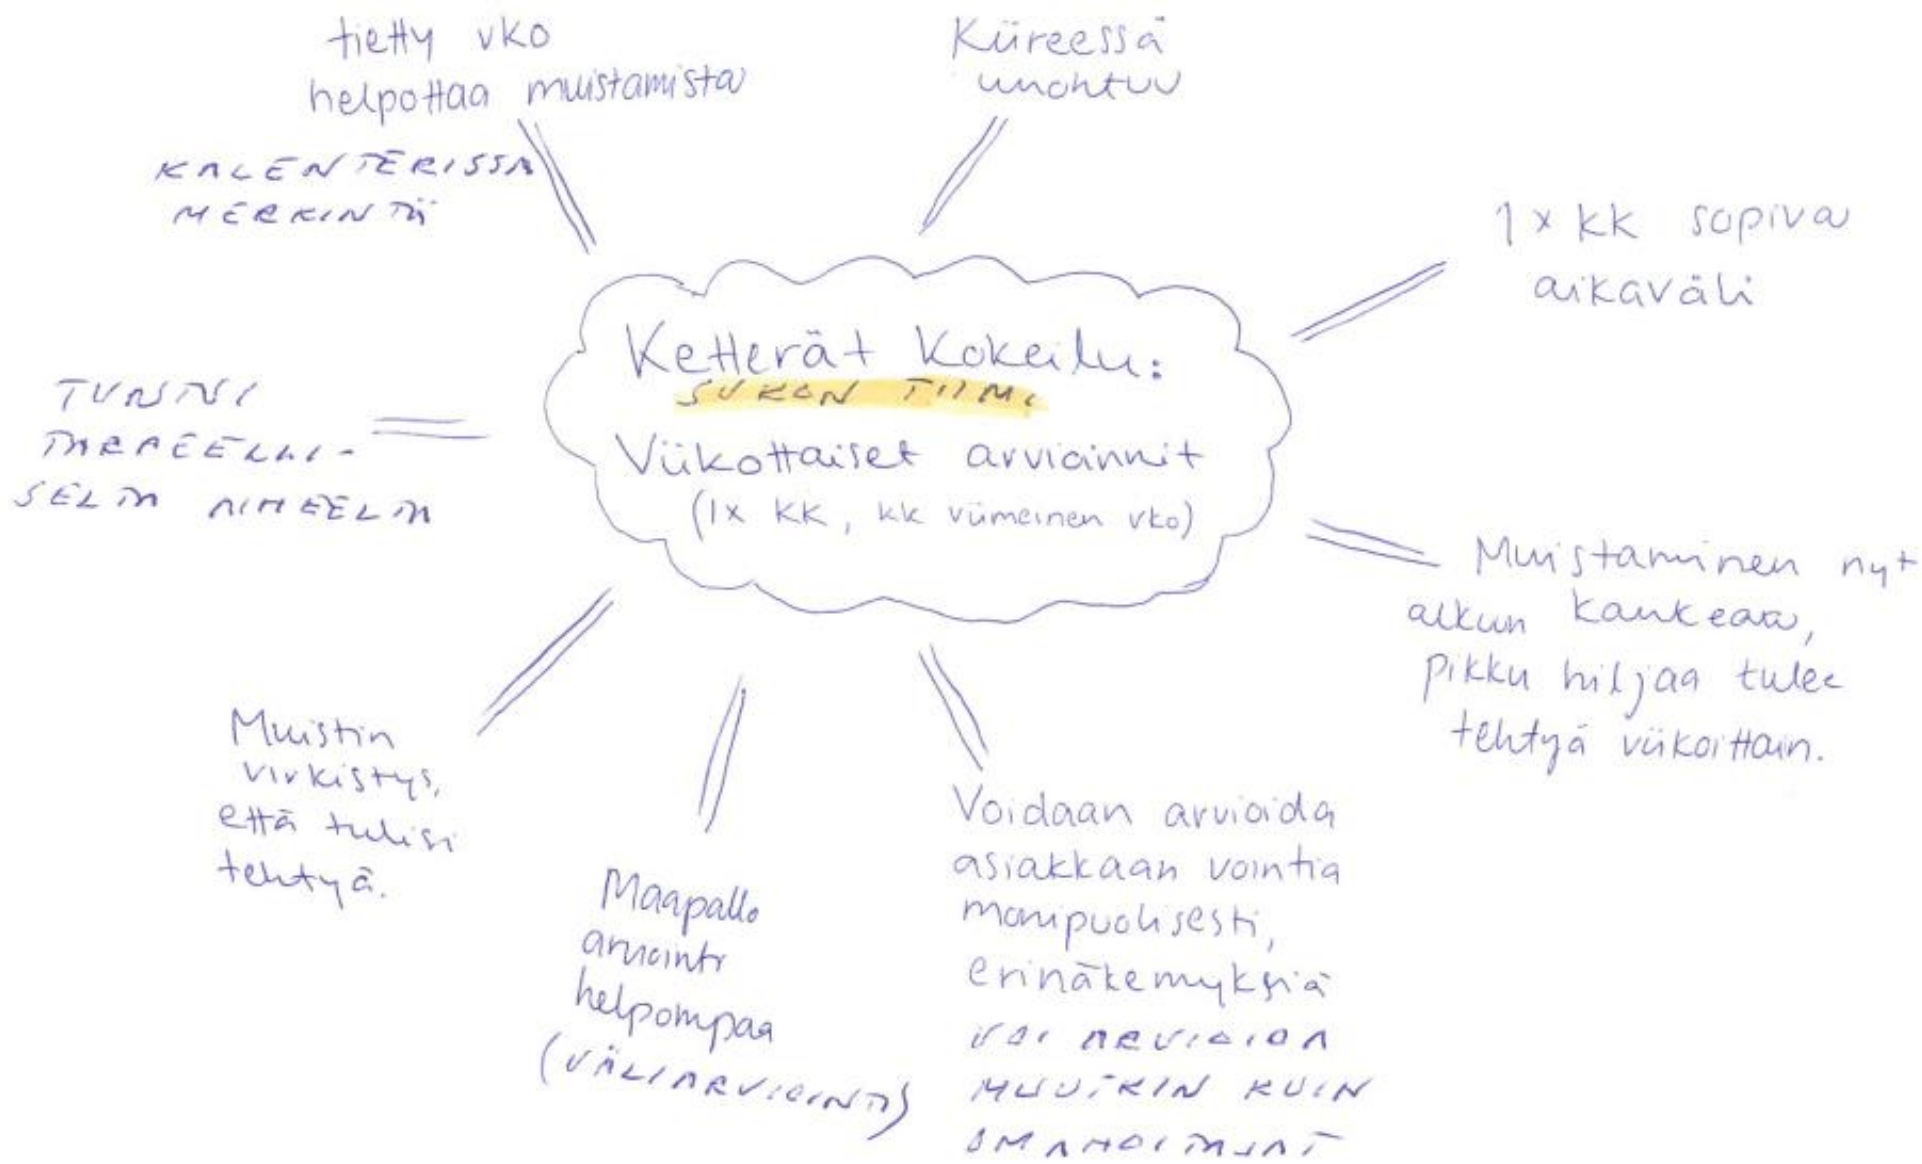 tietty vko
helpottaa muistamista
KALENTERISSA
MERKINTÄ
Kiireessä
unohtuu
1 x kk sopiva
aikaväli
Ketterät Kokeilu:
SUKON TIIMI
Viikottaiset arvioinnit
(1x kk, kk viimeinen vko)
TUNTUI
TARPEELLI-
SELTA AIHEELTA
Muistaminen nyt
alkuun hankeaa,
pikku hiljaa tulee
tehtyä viikoittain.
Muistin
virkistys,
että tulisi
tehtyä.
Maapallo
arviointi
helpompaa
(VÄLIARVIOINTI)
Voidaan arvioida
asiakkaan vointia
monipuolisesti,
erinäkemyksiä
VOI ARVIOIDA
MUUTKIN KUIN
OMAHOITAJAT